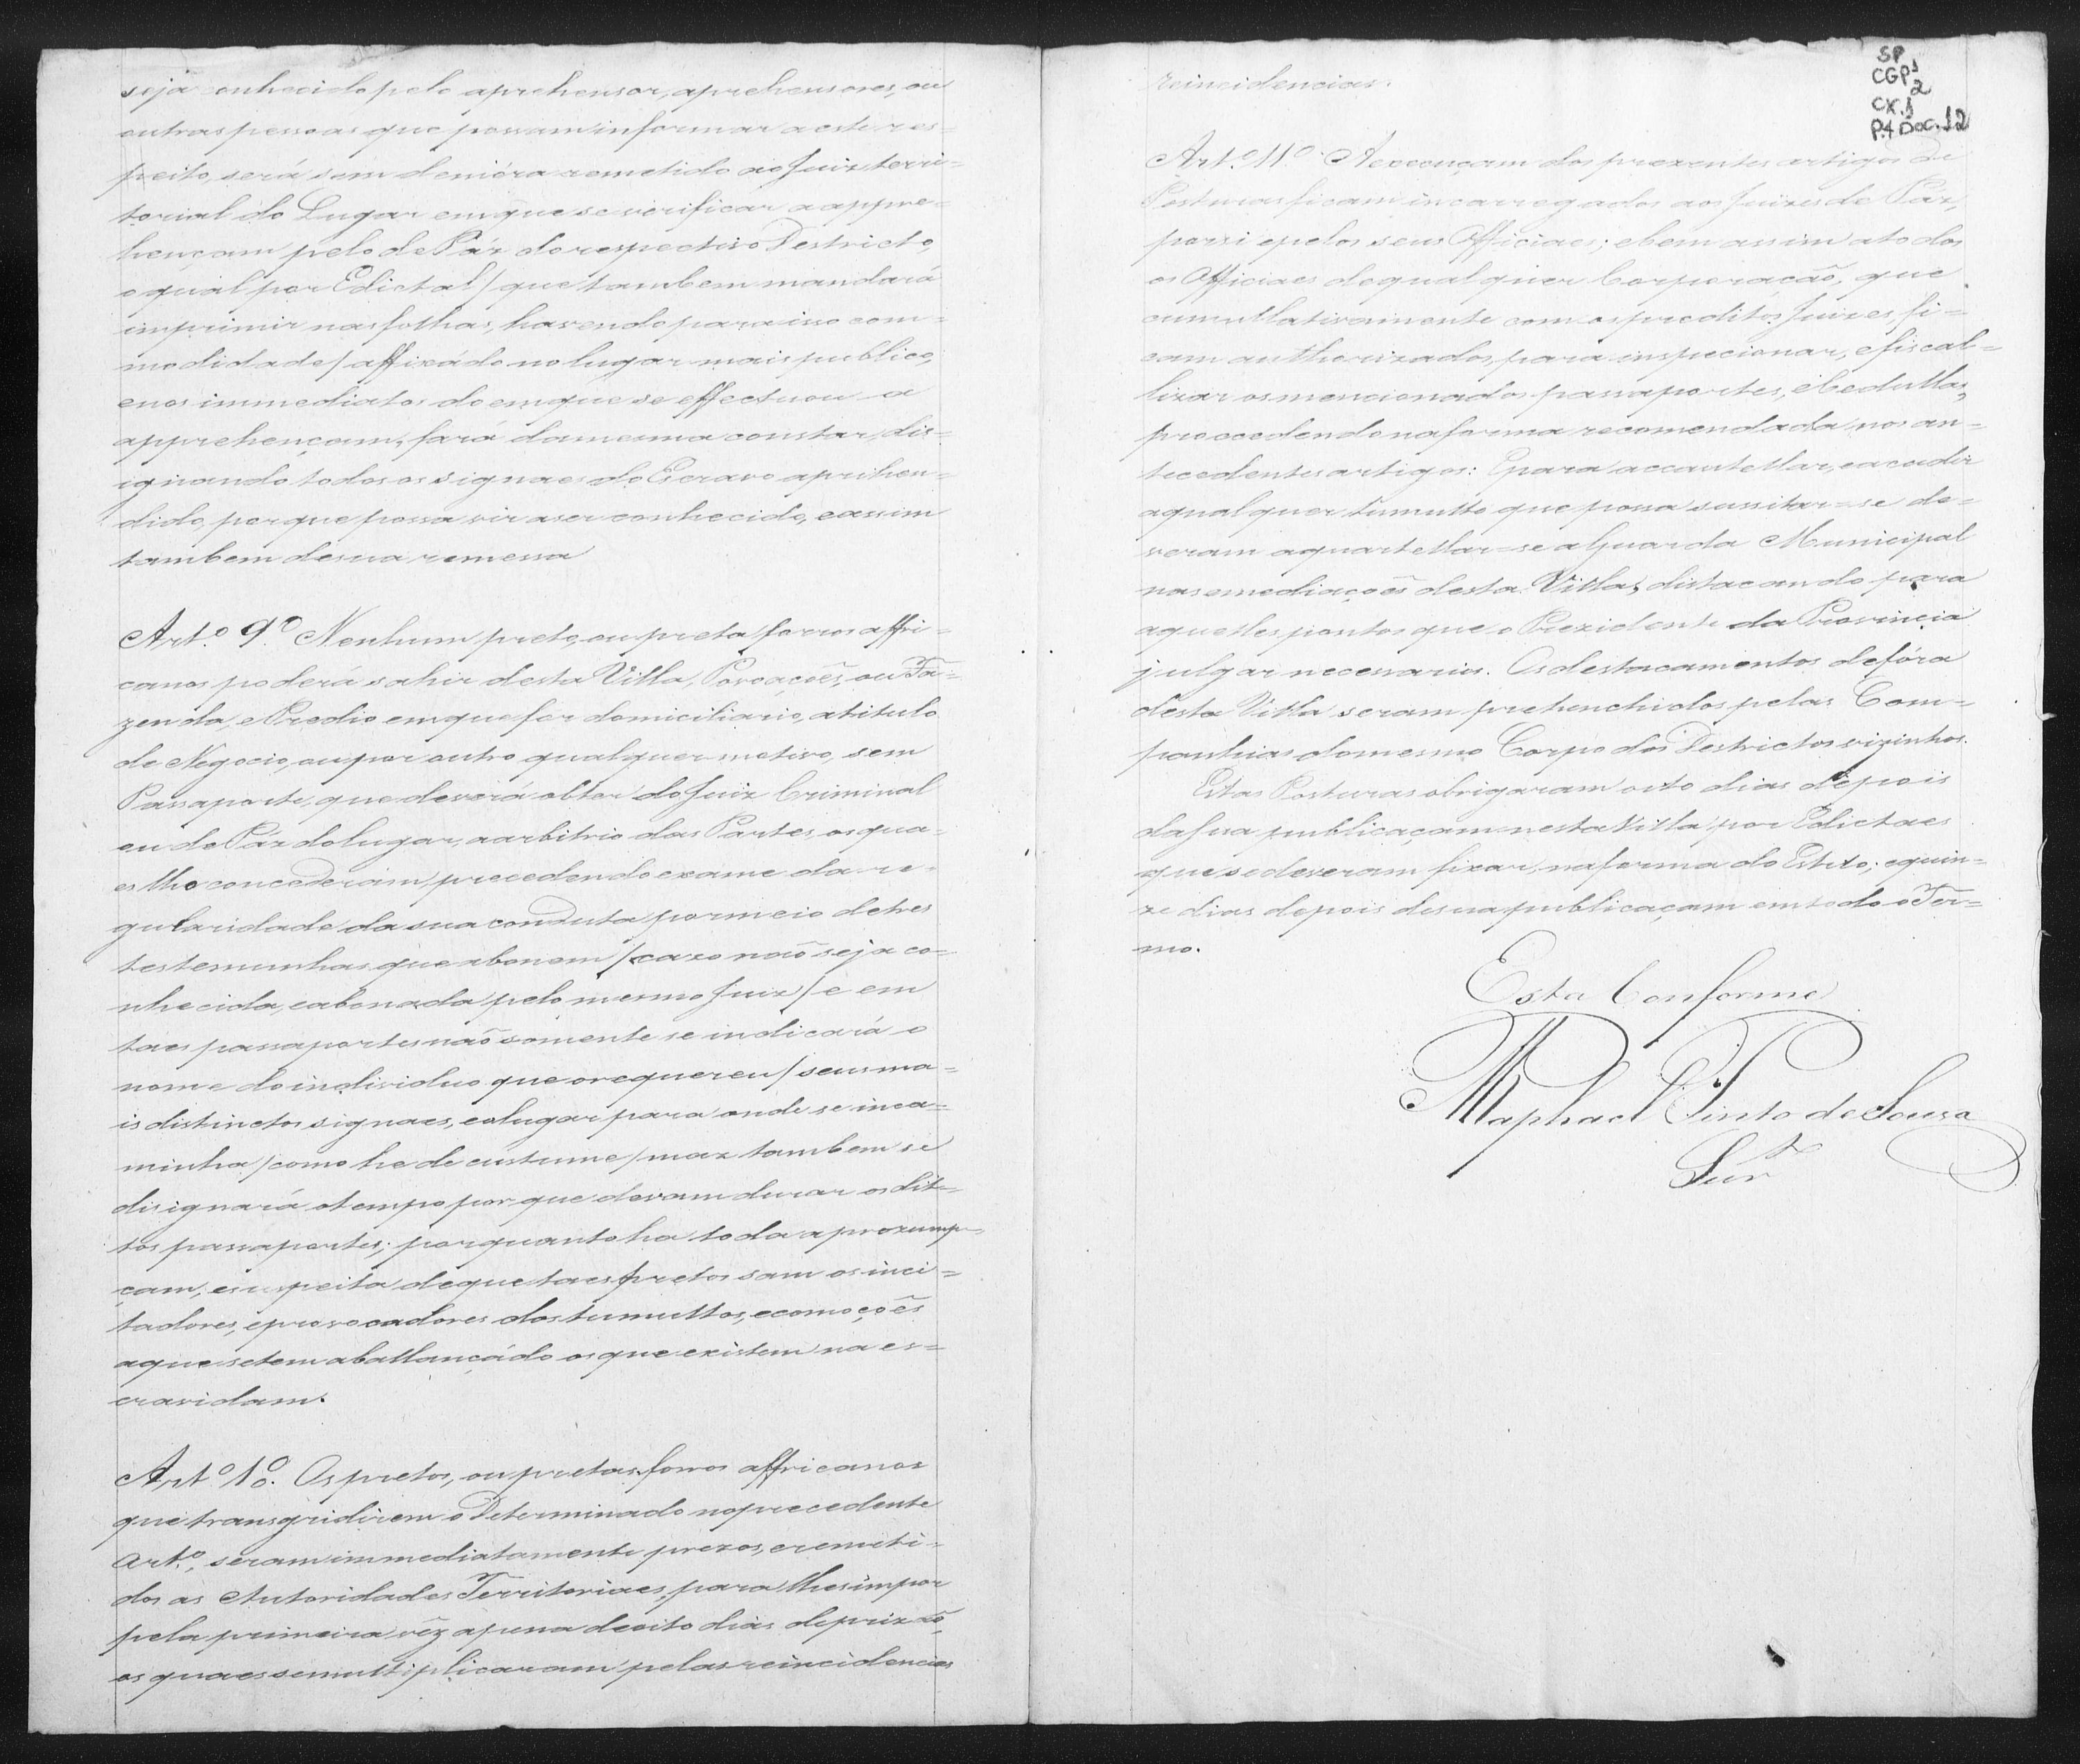 seja conhecido pelo aprehensor, aprehensores, ou
outras pessoas que possam informar a este res=
peito, será sem demóra remetido ao Juiz terri=
torial do Lugar em que se verificar a appre=
hençam pelo de Páz do respectivo Destricto,
o qual por Edictal / que tambem mandará
imprimir nas folhas, havendo para isso com=
modidade / affixádo no lugar mais publico,
e nos immediatos do em que se effectuou a
apprehençam, fará da mesma constar, dis=
ignando todos os signaes do Escravo aprihen=
dido, porque possa vir a ser conhecido, e assim
tambem de sua remessa
Art.º 9.º Nenhum preto, ou preta forros affri=
canos poderá sahir desta Villa, Povoaçoẽs, ou Fa=
zenda, e Predio em que for domiciliario, a titulo
de Negocio, ou por outro qualquer motivo, sem
Passaporte, que deverá obter do Juiz Criminal
ou de Páz do lugar, a arbitrio das Partes, os qua=
es lho concederám, precedendo exame da re=
gularidade da sua conduta por meio de tres
testemunhas que abonem / cazo naõ seja co=
nhecida, e abonada pelo mesmo Juiz / e em
taes passaportes naõ somente se indicará o
nome do individuo que o requereu / seus ma=
is distinctos signaes, e o lugar para onde se inca=
minha / como he de custume / maz tambem se
disignará o tempo por que devam durar os dit=
tos passaportes; porquanto ha toda a prezump=
çam, e suspeita de que taes pretos sam os inci=
tadores, e provocadores dos tumultos, e comoçoẽs
a que se tem aballançádo os que existem na es=
cravidam.
Art.º 10.º Os pretos, ou pretas forros affricanos
que transgridirem o Determinado no precedente
Art.º, seram immediatamente prezos, e remeti=
dos as Autoridades Territoriaes, para lhes impor
pela primeira vêz a pena de oito dias de prizaõ,
os quaes se multiplicaram pelas reincidencias
SP
CGP1
2
CX.1
P.4 Doc. 12
reincidencias.
Art.º 11.º A execuçam dos prezentes artigos de
Posturas ficam incarregados aos Juizes de Páz,
por si e pelos seus Officiaes; e bem assim a todos
os Officiaes de qualquer Corporação, que
cumullativamente com os preditos Juizes fi=
cam authorizados, para inspecionar, e fiscal=
lizar os mencionados passaportes, e Cedullas,
procedendo na forma recomendada nos an=
tecedentes artigos: E para accautellar, e acudir
a qualquer tumulto que possa sussitar=se de=
veram aquartellar=se a Guarda Municipal
nas emediaçoẽs desta Villa, distacando para
aquelles pontos que o Prezidente da Provincia
julgar necessarios. Os destacamentos de fóra
desta Villa seram prehenchidos pelas Com=
panhias do mesmo Corpo dos Destrictos vizinhos.
Estas Posturas obrigaram oito dias depois
da sua publicaçam nesta Villa por Edictaes
que se deveram fixar, na forma do Estilo; e quin=
ze dias depois de sua publicaçam em todo o Ter=
mo.
Esta Conforme
Raphael Pinto de Souza